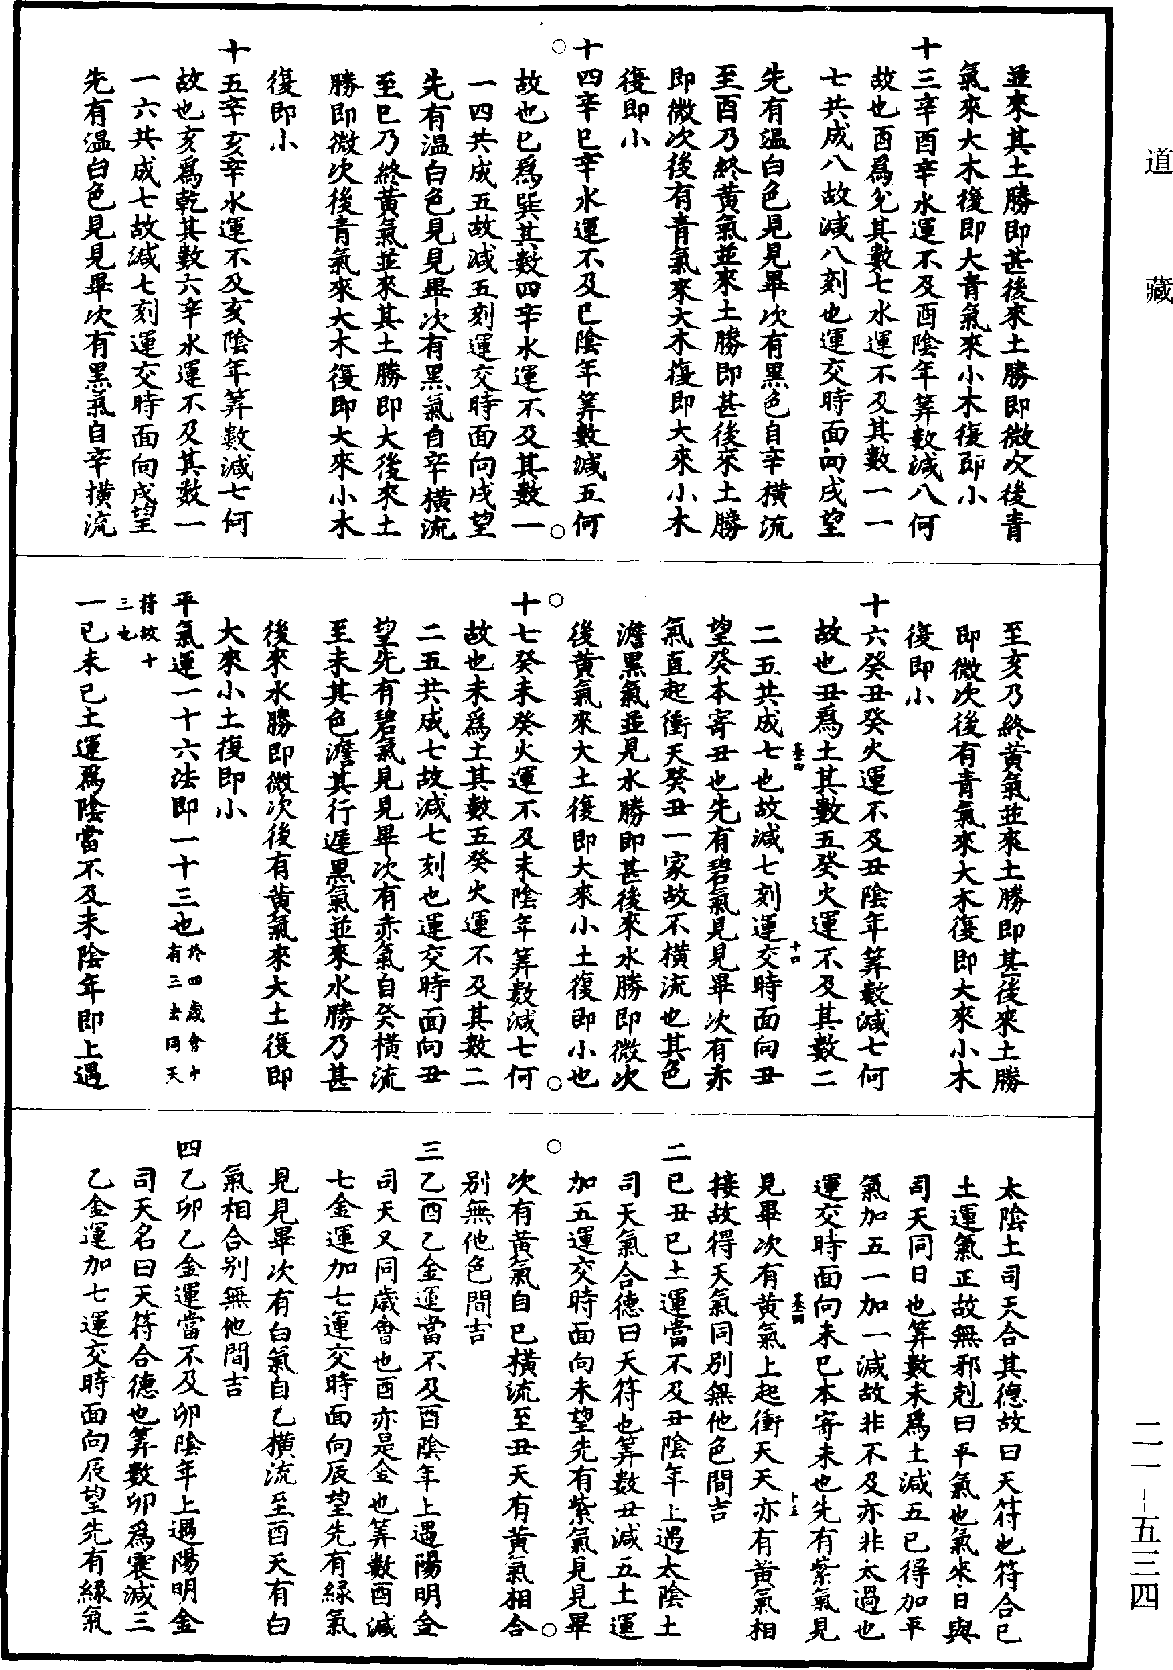 道藏
並來其土勝即甚後來土勝即微次後青
氣來大木復即大青氣來小木復即小
十三辛酉辛水運不及酉陰年筭數減八何
故也酉爲兌其數七水運不及其數一一
七共成八故減八刻也運交時面向戌望
先有溫白色見見畢次有黑色自辛橫流
至酉乃終黃氣並來土勝即甚後來土勝
即微次後有青氣來大木復即大來小木
復即小
十四辛巳辛水運不及巳陰年筭數減五何
故也巳爲巽其數四辛水運不及其數一
一四共成五故減五刻運交時面向戌望
先有溫白色見見畢次有黑氣自辛橫流
至巳乃終黃氣並來其土勝即大後來土
勝即微次後青氣來大木復即大來小木
復即小
十五辛亥辛水運不及亥陰年筭數減七何
故也亥爲乾其數六辛水運不及其數一
一六共成七故減七刻運交時面向戌望
先有溫白色見見畢次有黑氣自辛橫流
至亥乃終黃氣並來土勝即甚後來土勝
即微次後有青氣來大木復即大來小木
復即小
十六癸丑癸火運不及丑陰年筭數減七何
故也丑爲土其數五癸火運不及其數二
二五共成七也故減七刻運交時面向丑
望癸本寄丑也先有碧氣見見畢次有赤
氣直起衝天癸丑一家故不橫流也其色
澹黑氣並見水勝即甚後來水勝即微次
後黃氣來大土復即大來小土復即小也
十七癸未癸火運不及未陰年筭數減七何
故也未爲土其數五癸火運不及其數二
二五共成七故減七刻也運交時面向丑
望先有碧氣見見畢次有赤氣自癸橫流
至未其色澹其行遲黑氣並來水勝乃甚
後來水勝即微次後有黃氣來大土復即
大來小土復即小
平氣運一十六法即一十三也於四歲會中有三去同天
符故十三也
一己未己土運爲陰當不及未陰年即上遇
太陰土司天合其德故曰天符也符合己
土運氣正故無邪剋曰平氣也氣來日與
司天同日也筭數未爲土減五已得加平
氣加五一加一減故非不及亦非太過也
運交時面向未己本寄未也先有紫氣見
見畢次有黃氣上起衝天天亦有黃氣相
接故得天氣同別無他色間吉
二己丑己土運當不及丑陰年上遇太陰土
司天氣合德曰天符也筭數丑減五土運
加五運交時面向未望先有紫氣見見畢
次有黃氣自己橫流至丑天有黃氣相合
別無他色間吉
三乙酉乙金運當不及酉陰年上遇陽明金
司天又同歲會也酉亦是金也筭數酉減
七金運加七運交時面向辰望先有綠氣
見見畢次有白氣自乙橫流至酉天有白
氣相合別無他間吉
四乙卯乙金運當不及卯陰年上遇陽明金
司天名曰天符合德也筭數卯爲震減三
乙金運加七運交時面向辰望先有綠氣
二一-五三四